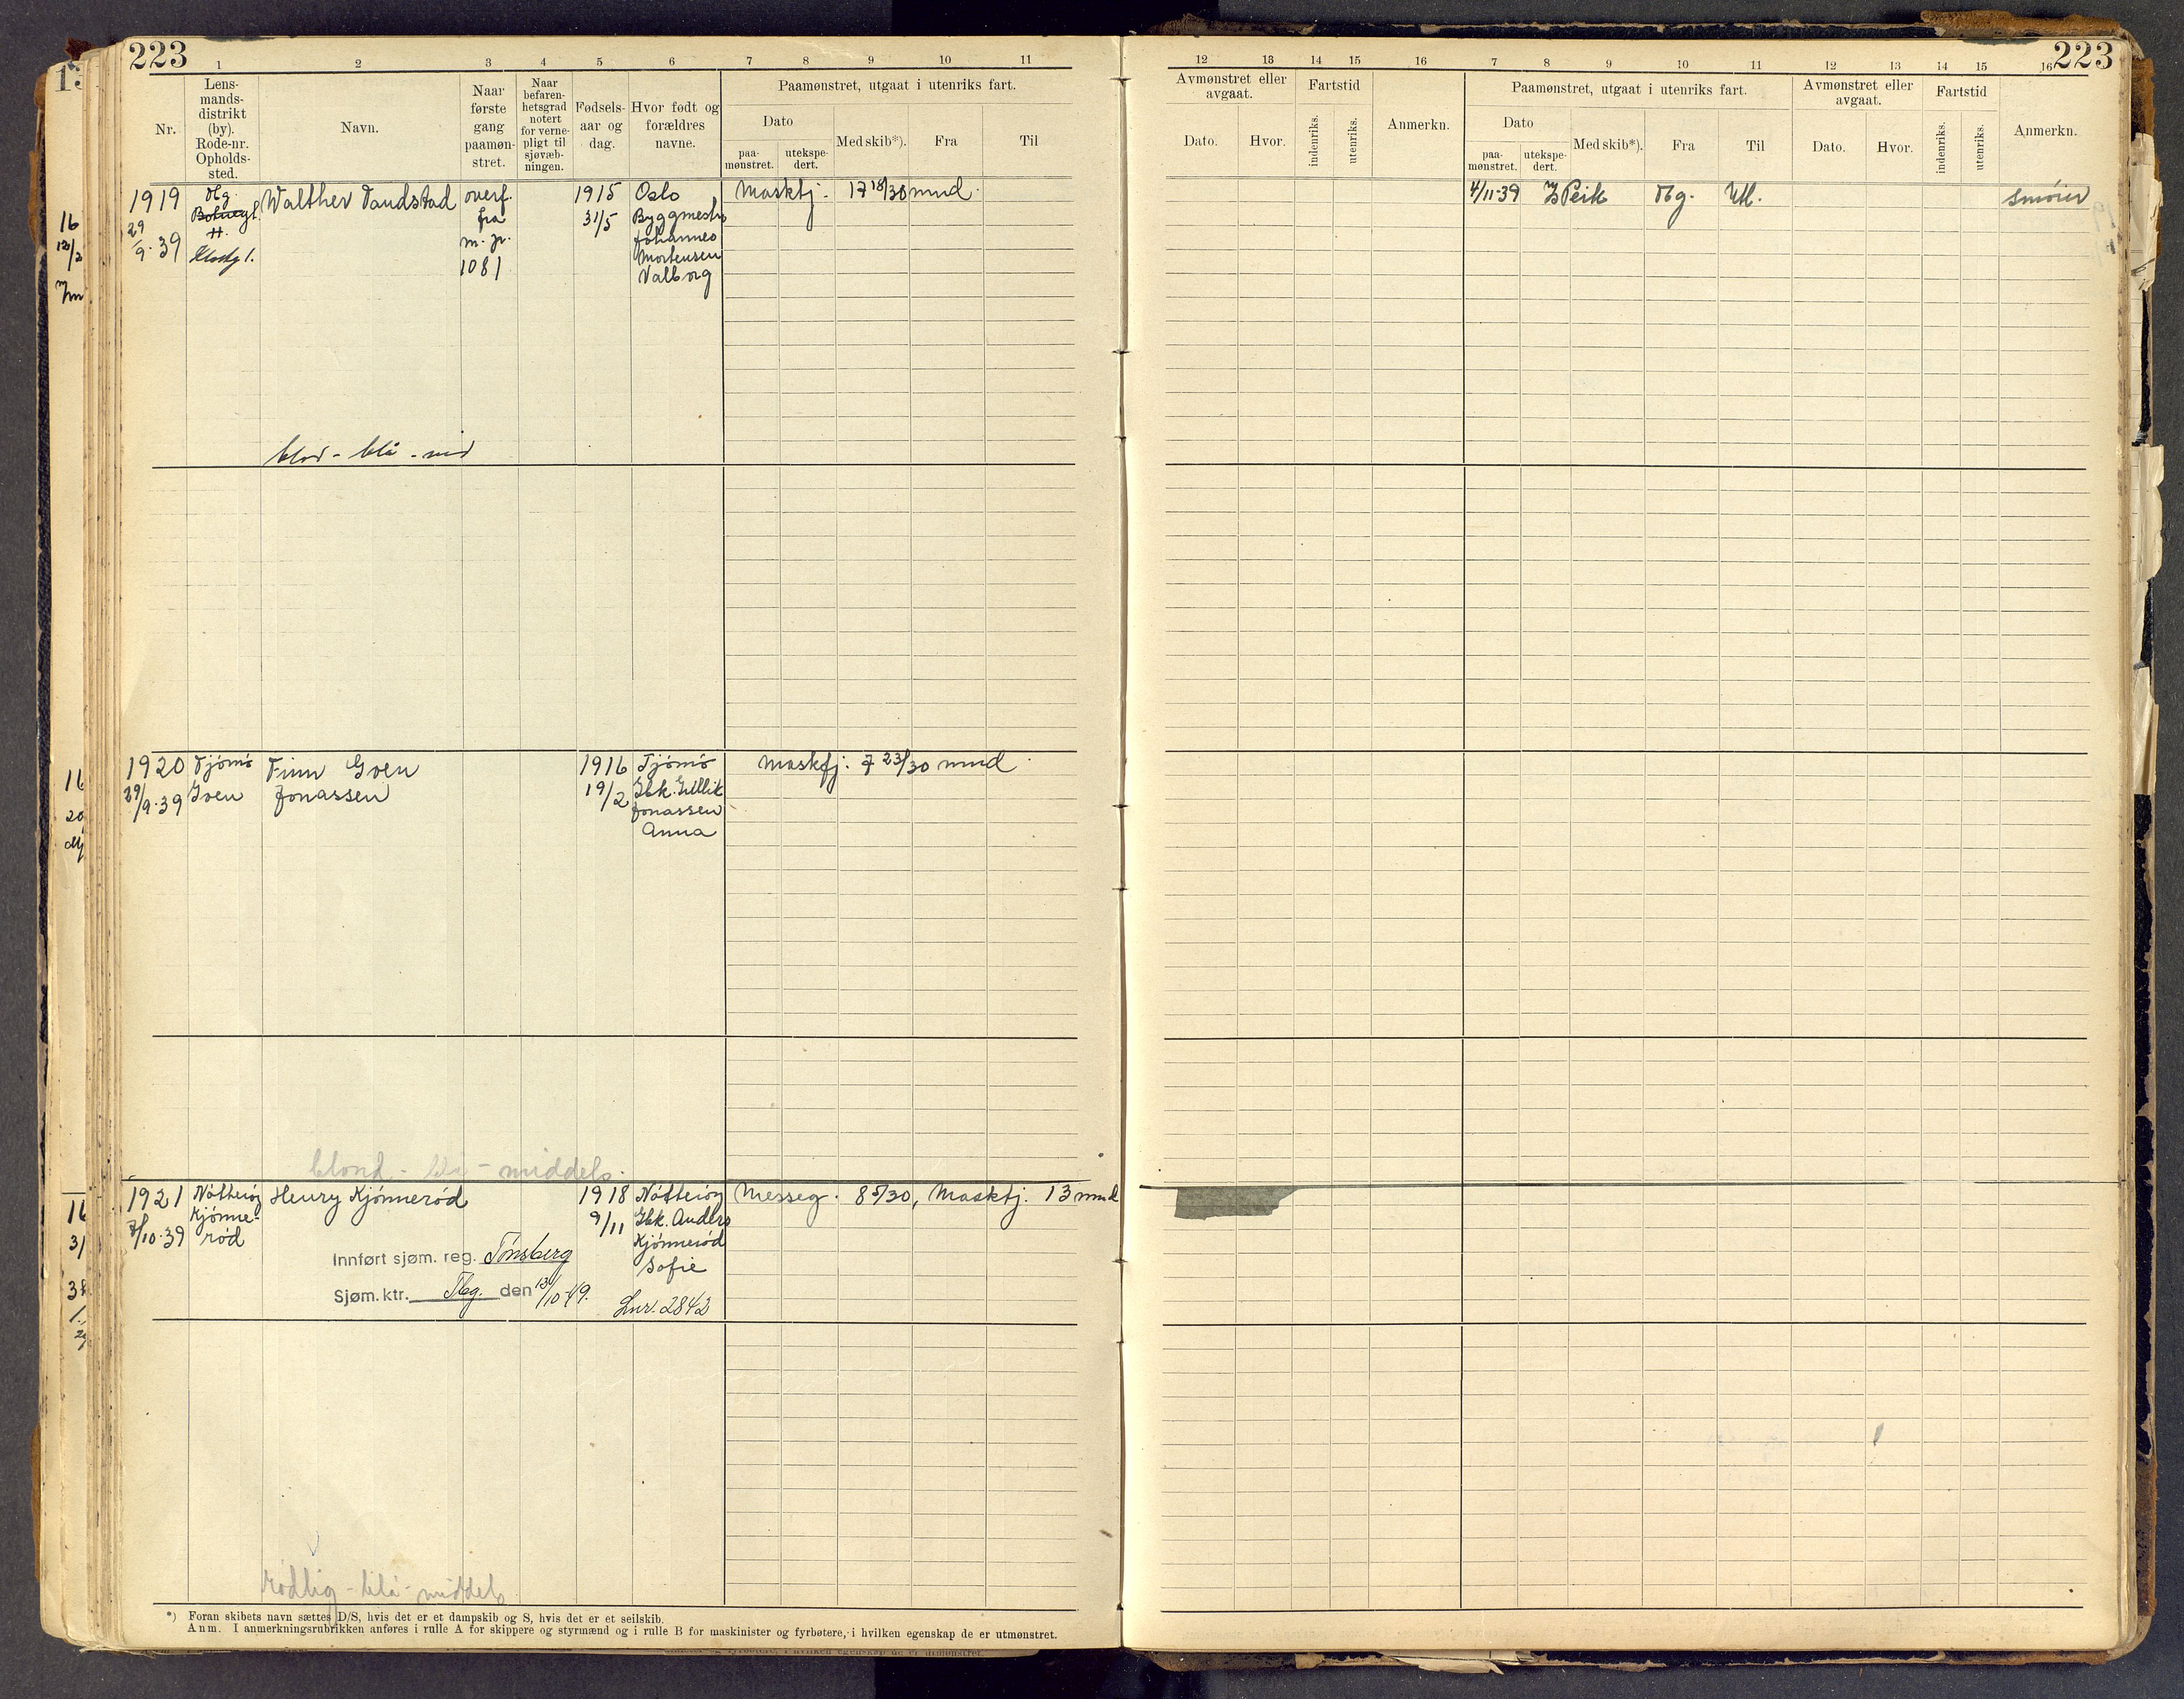 223
1 2 3 4 5 6 7 8 9 10 11
Nr.
Lens-
mands-
distrikt
(by).
Rode-nr.
Opholds-
sted.
Navn.
Naar
første
gang
paamøn-
stret.
Naar
befaren-
hetsgrad
notert
for verne-
pligt til
sjøvæb-
ningen.
Fødsels-
aar og
dag.
Hvor født og
forældres
navne.
Paamønstret, utgaat i utenriks fart.
Dato
paa-
mønstret.
utekspe-
dert.
Med skib*).
Fra
Til
1919
29/9-39
Tbg.
Walther Tandstad
overf.
fra
m. p.
1081
1915
31/5
Oslo
Byggmester
Johannes
Mortensen
Valborg
Maskfj. 17 18/30 mnd.
blond - blå -
1920
29/9-39
Tjømø
Goen
Finn Goen
Jonassen
1916
19/2
Tjømø
Gbk. Gullik
Jonassen
Anna
Maskfj. 7 23/30 mnd.
blond - blå - middels.
1921
7/10-39
Nøtterøy
Kjønne-
rød
Henry Kjønnerød
1918
9/11
Nøtterøy
Gbk. Anders
Kjønnerød
Sofie
Messeg. 8 5/30, Maskfj. 13 mnd
Innført sjøm. reg. Tønsberg
Sjøm. ktr. Tbg. den 13/10-49.
Lnr. 2842
rødlig - blå - middels
*) Foran skibets navn sættes D/S, hvis det er et dampskib og S, hvis det er et seilskib.
Anm. I anmerkningsrubrikken anføres i rulle A for skippere og styrmænd og i rulle B for maskinister og fyrbøtere, i hvilken egenskap de er utmønstret.
223
12 13 14 15 16 7 8 9 10 11 12 13 14 15 16
Avmønstret eller
avgaat.
Dato.
Hvor.
Fartstid
indenriks.
utenriks.
Anmerkn.
Paamønstret, utgaat i utenriks fart.
Dato
paa-
mønstret.
utekspe-
dert.
Med skib*).
Fra
Til
Avmønstret eller
avgaat.
Dato.
Hvor.
Fartstid
indenriks.
utenriks.
Anmerkn.
4/11-39 Peik Tbg. Utl. smører